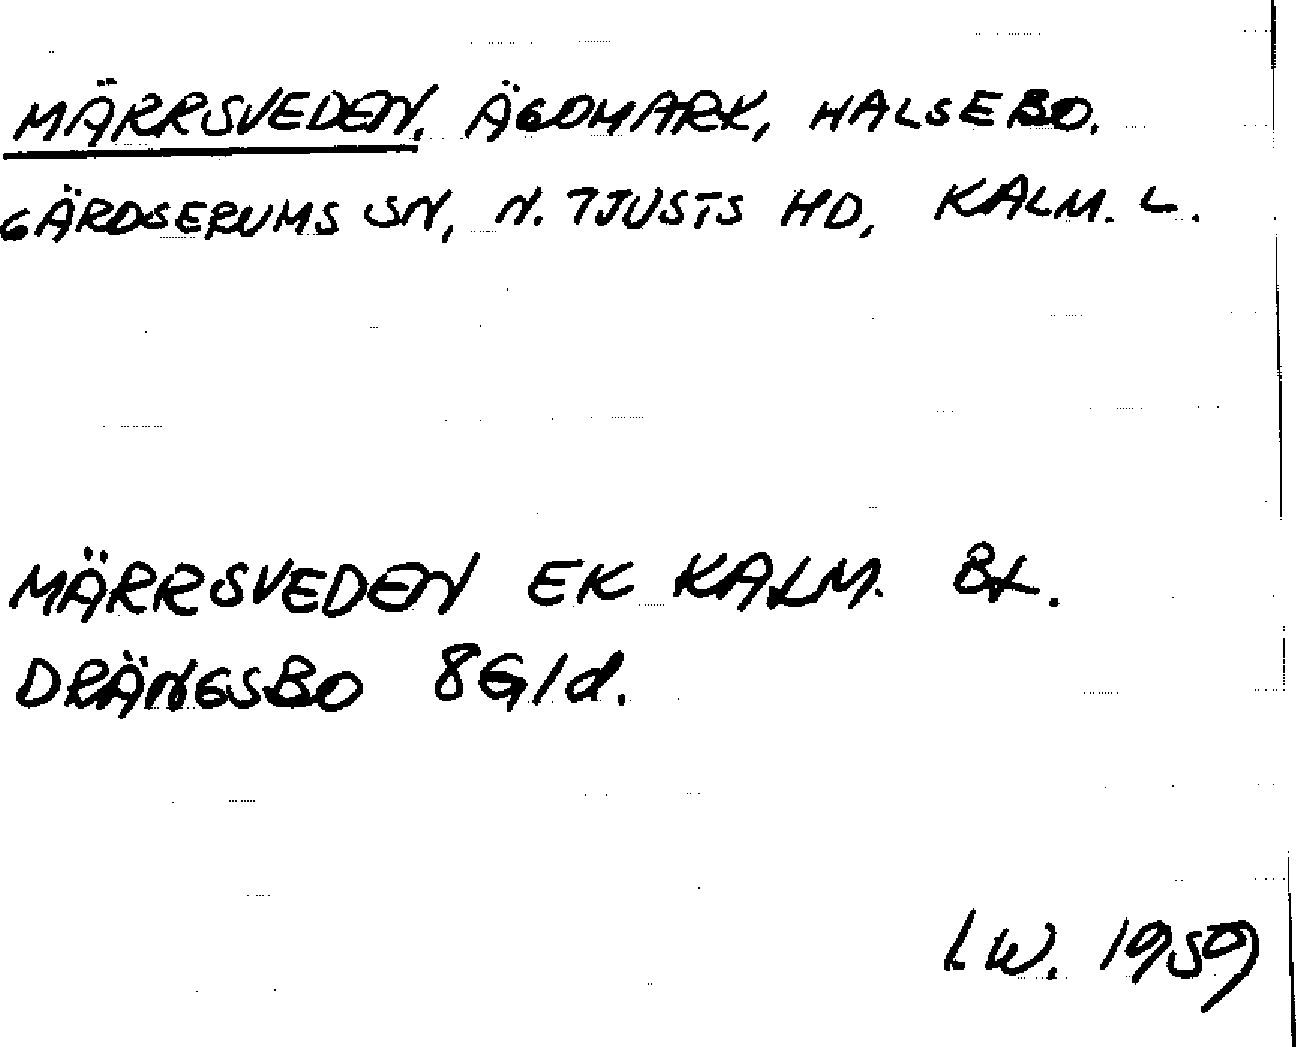 MÄRRSVEDEN. ÄGOMARK, HALSEBO.
GÄRDSERUMS SN, N. TJUSTS HD, KALM. L.
MÄRRSVEDEN EK KALM. BL.
DRÄNGSBO 8G1d.
I.W. 1959